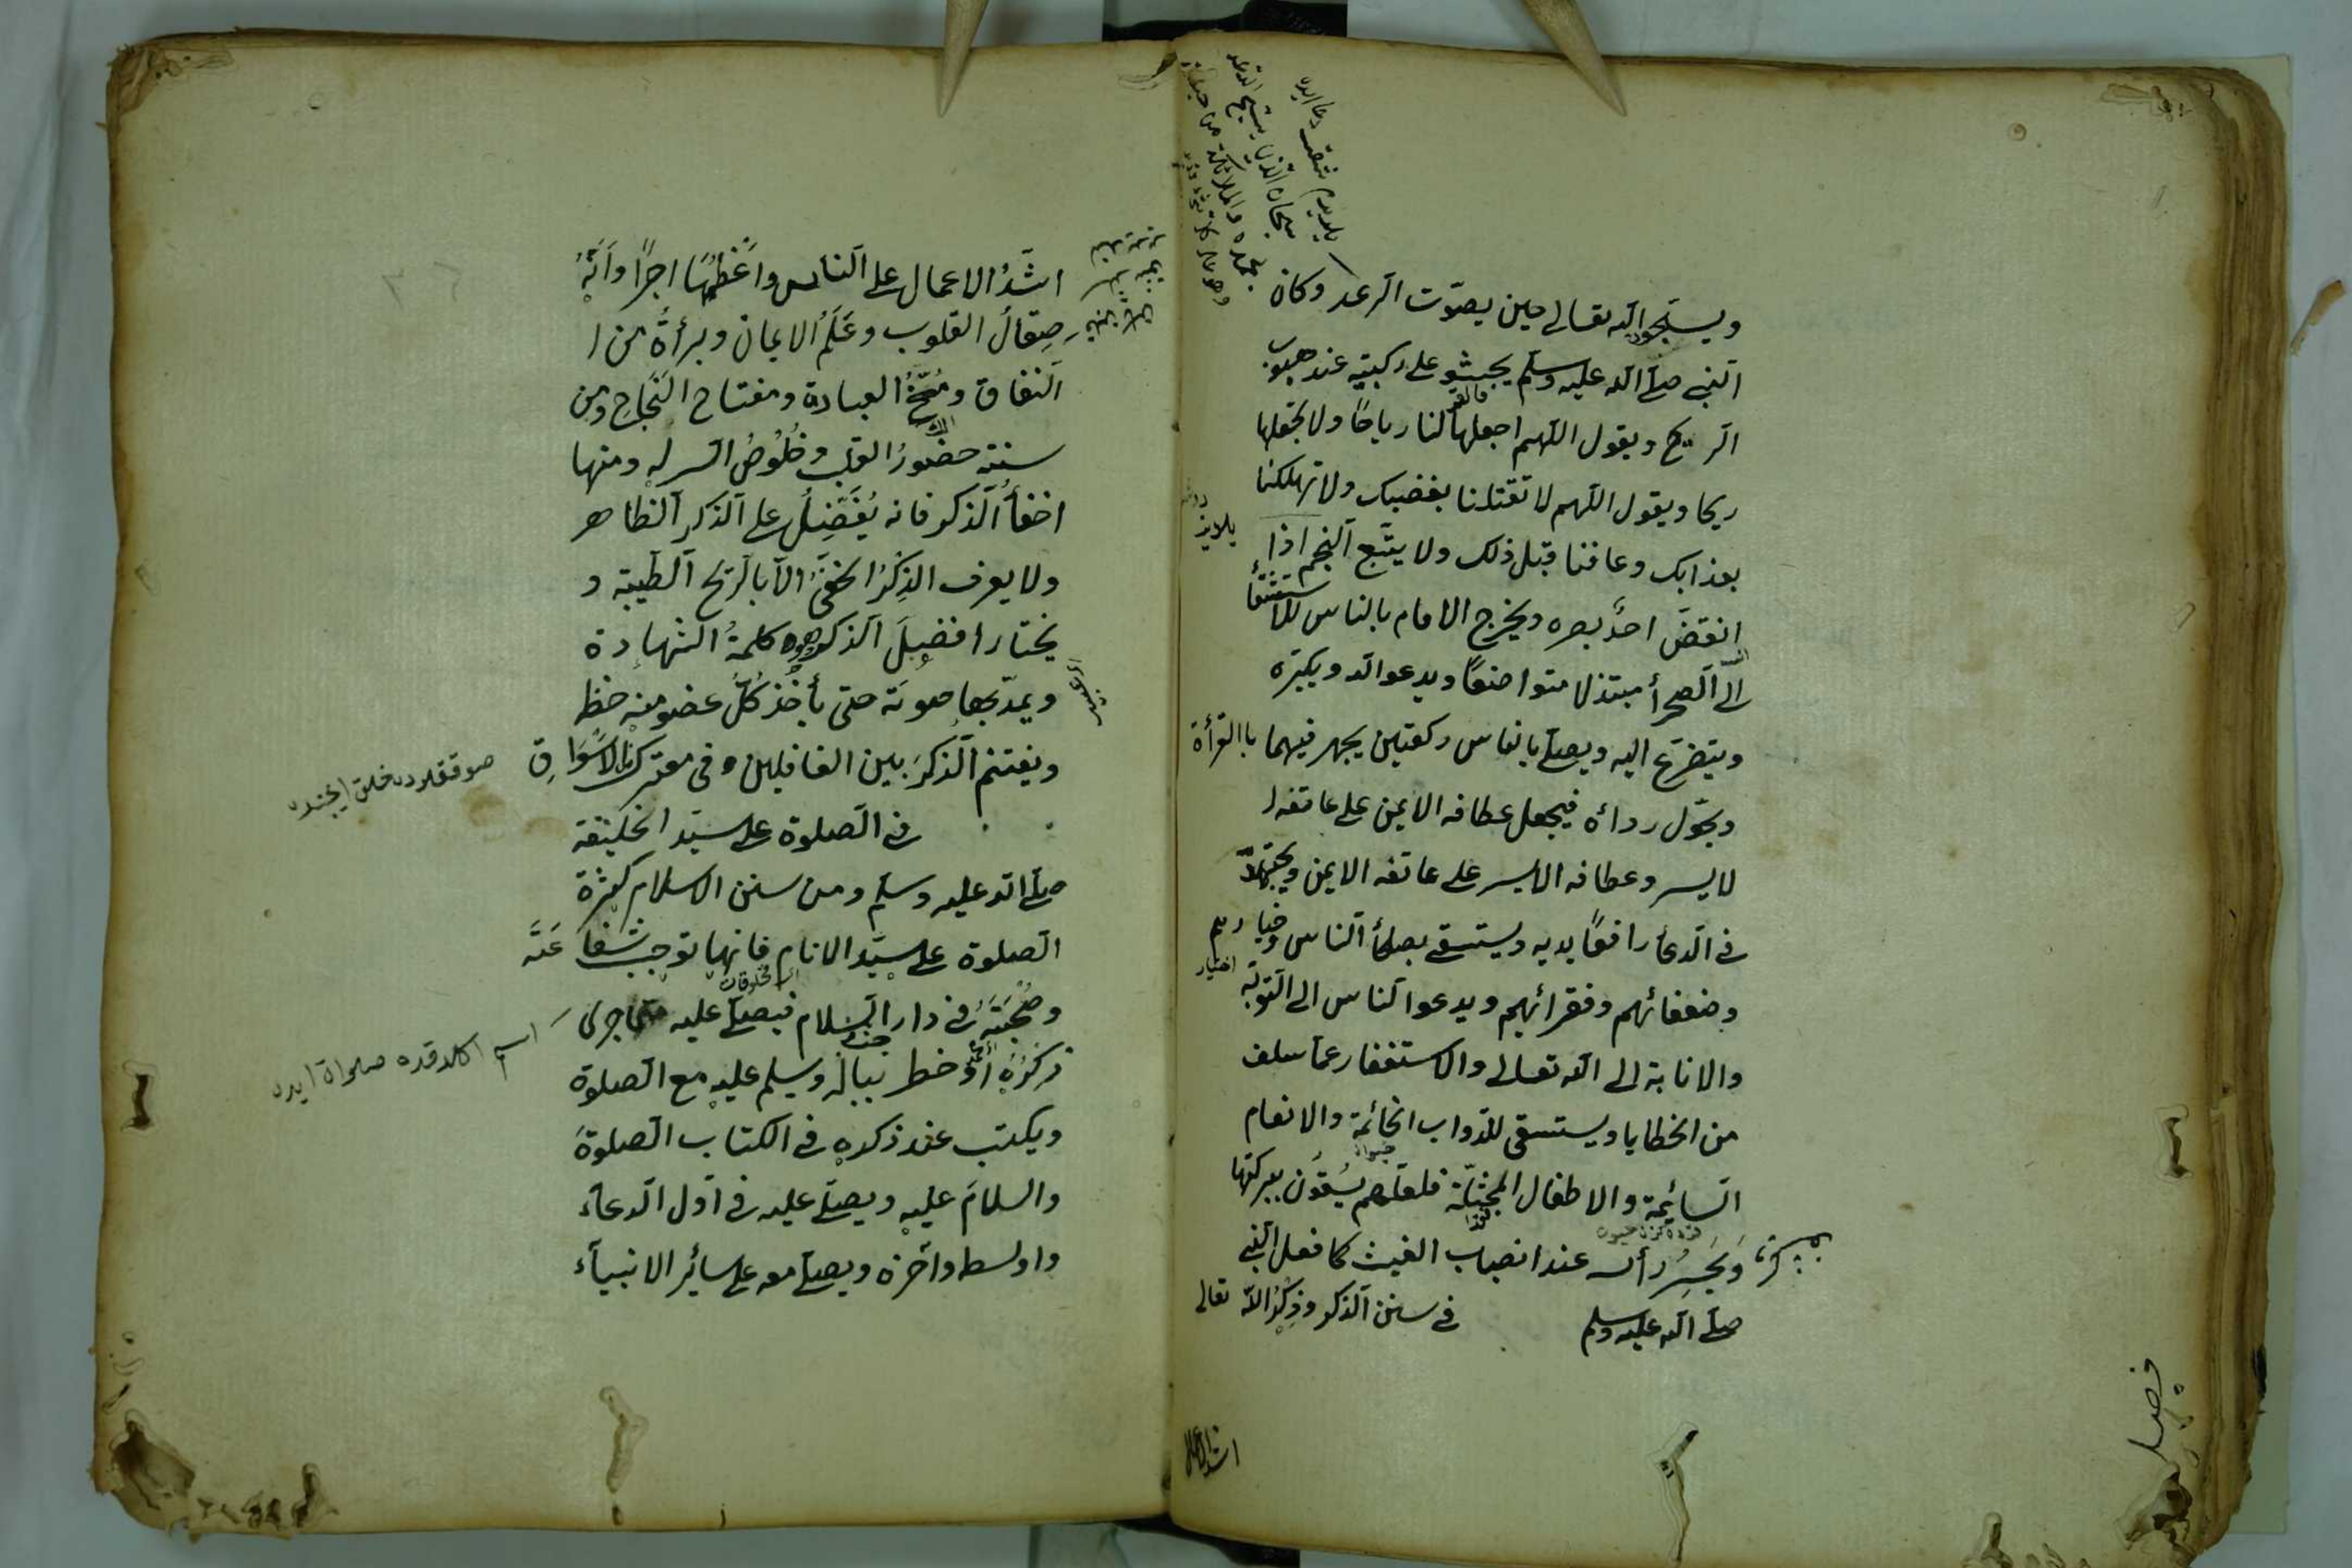 ويسبحون الله تعالى حين يصوّت الرعد وكان
النبى صلى الله عليه وسلم يجثو على ركبتيه عند هبوب
الريح ويقول اللهم اجعلها لنا رياحًا ولا تجعلها
ريحا ويقول اللهم لا تقتلنا بغضبك ولا تهلكنا
بعذابك وعافنا قبل ذلك ولا يتبع النجم اذا
انقضّ احدٌ بصره ويخرج الامام بالناس للاستسقأ
الى الصحرأ مبتذلا متواضعًا ويدعو الله ويكبره
ويتضرّع اليه ويصلى بالناس ركعتين يجهر فيهما باالقرأة
ويحوّل رداءه فيجعل عطافه الايمن على عاتقه ا
لايسر وعطافه الايسر على عاتقه الايمن ويجتهد
فى الدعأ رافعًا يديه ويستسقى بصلحأ الناس وخيارهم
وضعفائهم وفقرائهم ويدعوا الناس الى التوبة
والانابة الى الله تعالى والاستغفار عما سلف
من الخطايا ويستسقى للدواب الحائمة والانعام
السائمة والاطفال المحثلة فلعلهم يسقون ببركتها
ويحسر رأسه عند انصباب الغيث كما فعل النبى
صلى الله عليه وسلم فى سنن الذكر وذكر الله تعالى
فصل
اشد الاعمال
اشدُّ الاعمال على الناس واعظمُها اجرًا وانّه
صِقالُ القلوب وعَلَمُ الايمان وبرأةٌ من ا
النفاق ومُخُّ العبادة ومفتاح النجاح ومن
سننه حضورُ القلب وخُلُوصُ السر له ومنها
اخفأُ الذكر فانه يُفَضَّلُ على الذكر الظاهر
ولا يعرف الذِكرُ الخفىُّ الا بالريح الطيبة و
يختار افضلَ الذكر وهو كلمةُ الشهادة
ويمدّ بها صوته حتى يأخذ كلُّ عضو منه حظ
ويغتنم الذكرَ بين الغافلين وفى معترك الاسواق
صوقلرده خلق ايچنده
فى الصلوة على سيد الخليقة
صلى الله عليه وسلم ومن سنن الاسلام كثرة
الصلوة على سيّد الانام فانها توجب شفاعته
وصُحْبَتَهُ فى دار السلام فيصلى عليه متى جرى
ذكرُهُ أوْ خطر بباله ويسلم عليه مع الصلوة
ويكتب عند ذكره فى الكتاب الصلوةَ
والسلامَ عليه ويصلى عليه فى اول الدعاء
واوسطه وآخره ويصلى معه على سائر الانبياء